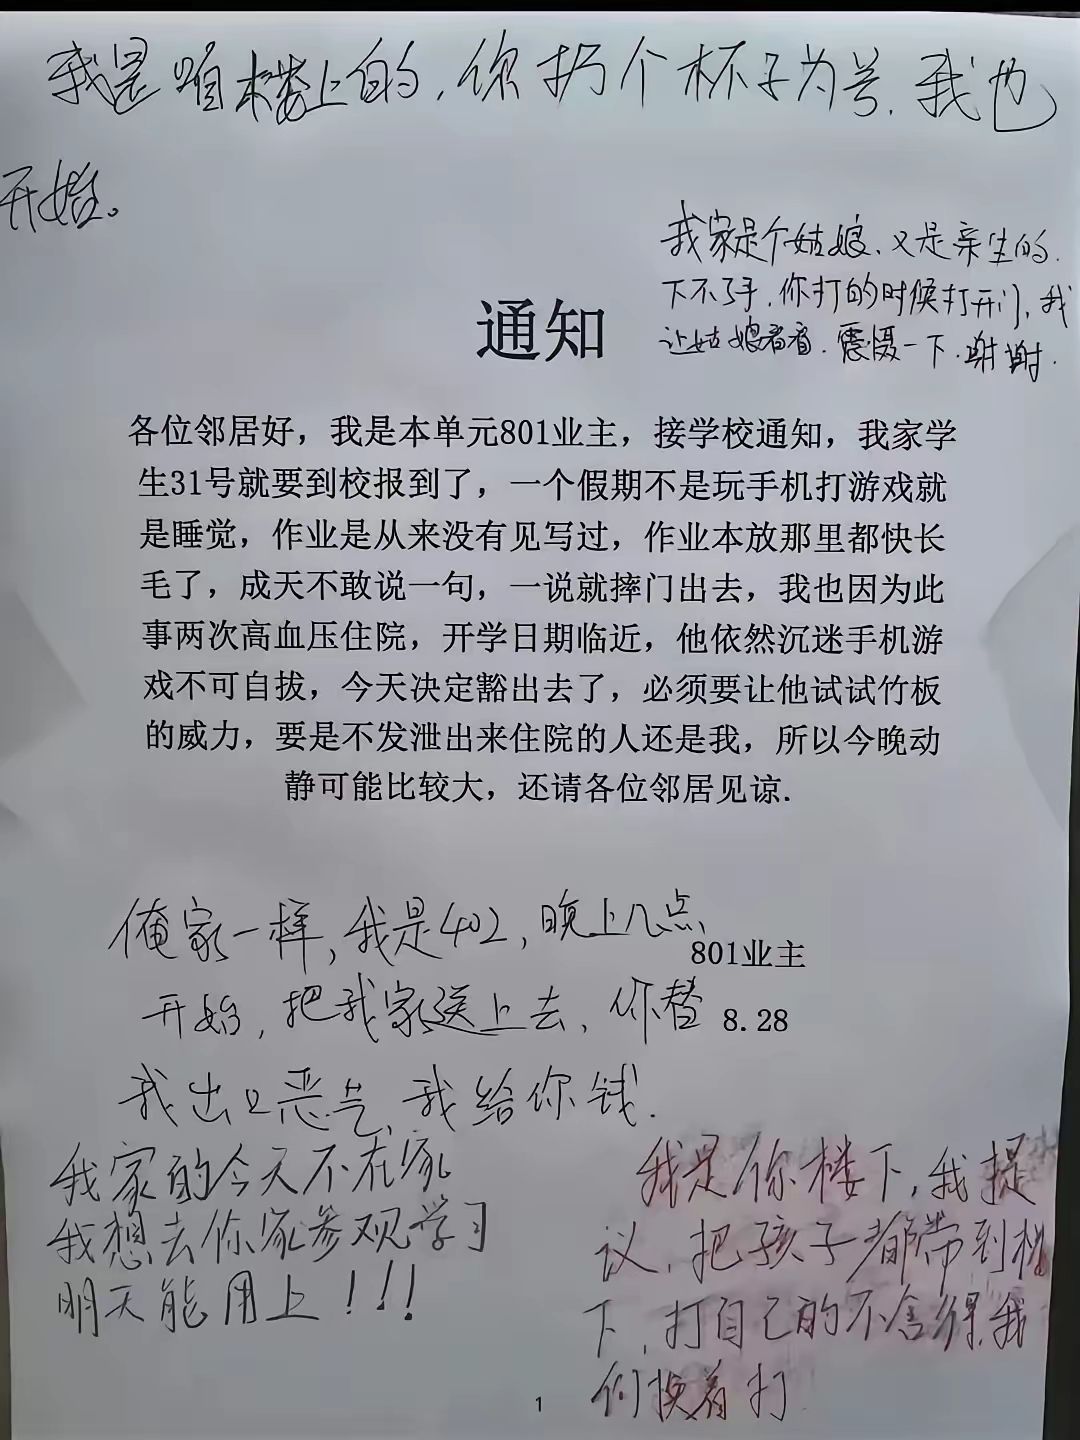 我是咱楼上的，你扔个杯子为号，我也
开始。
我家是个姑娘、又是亲生的.
下不了手，你打的时候打开门，我
让姑娘看看．震慑一下．谢谢．
通知
各位邻居好，我是本单元801业主，接学校通知，我家学
生31号就要到校报到了，一个假期不是玩手机打游戏就
是睡觉，作业是从来没有见写过，作业本放那里都快长
毛了，成天不敢说一句，一说就摔门出去，我也因为此
事两次高血压住院，开学日期临近，他依然沉迷手机游
戏不可自拔，今天决定豁出去了，必须要让他试试竹板
的威力，要是不发泄出来住院的人还是我，所以今晚动
静可能比较大，还请各位邻居见谅.
俺家一样，我是402，晚上几点
801业主
开始，把我家送上去，你替
8.28
我出口恶气，我给你钱.
我家的今天不在家
我想去你家参观学习
明天能用上！！！
我是你楼下，我提
议，把孩子都带到楼
下，打自己的不舍得，我
们换着打
1